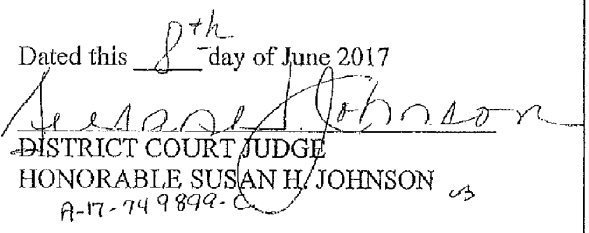 Dated this 8th day of June 2017
Susan Johnson
DISTRICT COURT JUDGE
HONORABLE SUSAN H. JOHNSON
A-17-749899-C